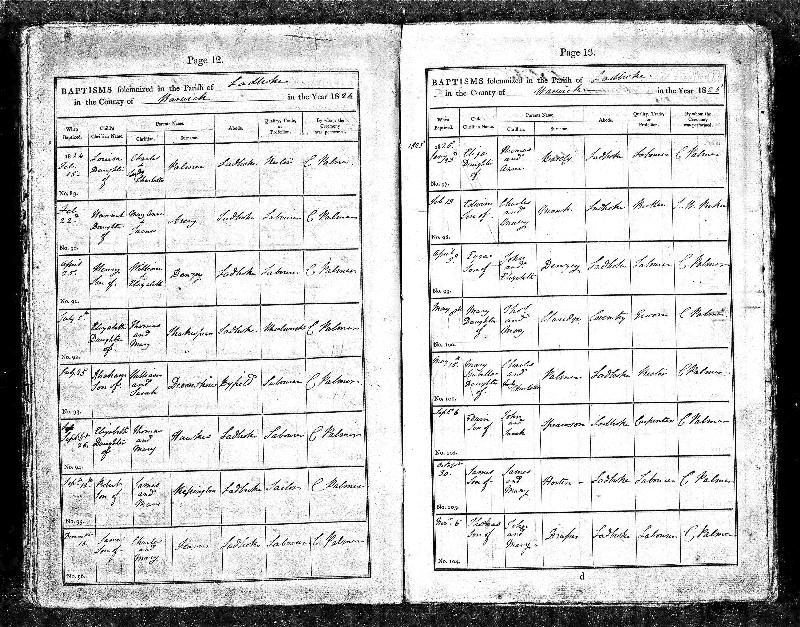 Page 12.
BAPTISMS solemnized in the Parish of Ladbroke
in the County of Warwick in the Year 1824
When Baptized. Child's Christian Name. Parents Name. Christian. Surname. Abode. Quality, Trade, or Profession. By whom the Ceremony was performed.
1824 Feb. 15. Louisa Daughter of Charles and Lady Charlotte Palmer Ladbroke Rector C Palmer
No. 89.
22. Hannah Daughter of Mary James Ladbroke Labourer C Palmer
No. 90.
April 25. Henry Son of William & Elizabeth Denzey Ladbroke Labourer C Palmer
No. 91.
July 5th Elizabeth Daughter of Thomas and Mary Ladbroke C Palmer
No. 92.
July 25 Abraham Son of William and Sarah Byfield Labourer C Palmer
No. 93.
Septber 26. Elizabeth Daughter of Thomas and Mary Hawkes Ladbroke Labourer C Palmer
No. 94.
Robert Son of James and Ladbroke C Palmer
No. 95.
Son of Charles and Mary Ladbroke Labourer C Palmer
No. 96.
Page 13.
BAPTISMS solemnized in the Parish of Ladbroke
in the County of Warwick in the Year 1825
When Baptized. Child's Christian Name. Parents Name. Christian. Surname. Abode. Quality, Trade, or Profession. By whom the Ceremony was performed.
1825
1825. Eliza Daughter of Thomas and Ann Ladbroke Labourer C Palmer
No. 97.
Feb 13 Edwin Son of Charles and Ladbroke
No. 98.
April Son of John and Elizabeth Denzey Ladbroke Labourer C Palmer
No. 99.
May Mary Daughter of Thos and Mary Claridge Coventry C Palmer
No. 100.
May 15. Mary Daughter of Charles and Lady Charlotte Palmer Ladbroke Rector C Palmer
No. 101.
Septr 6 Edwin Son of John and Sarah Ladbroke Carpenter C Palmer
No. 102.
October 30. James Son of James and Mary Ladbroke Labourer C Palmer
No. 103.
Novr 6 Thomas Son of John and Mary Draper Ladbroke Labourer C Palmer
No. 104.
d